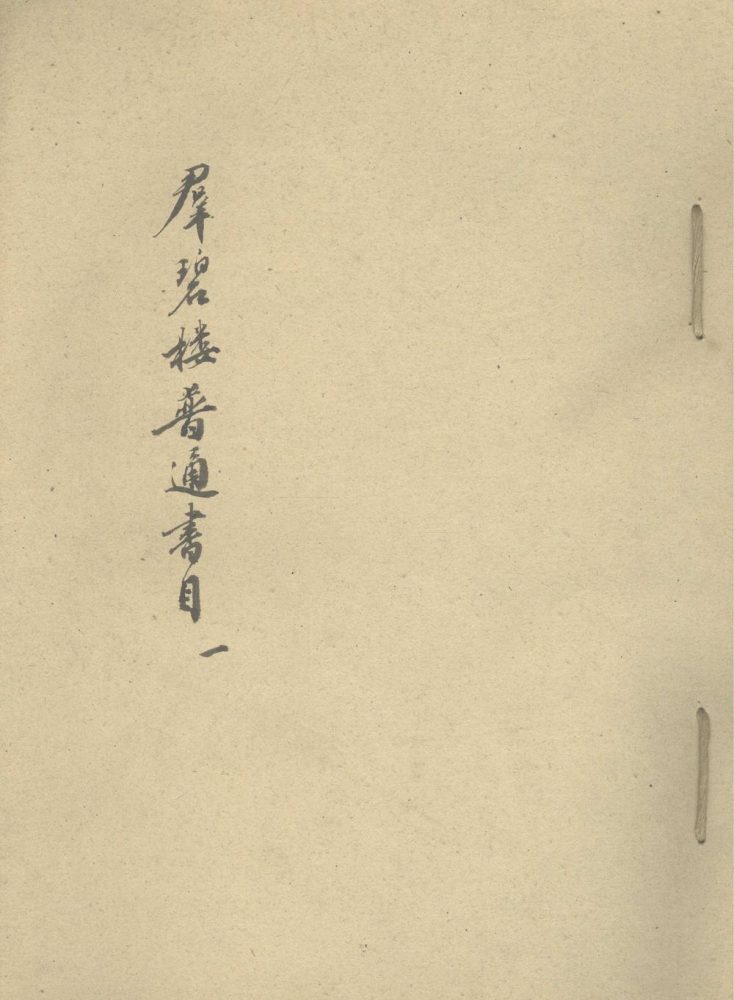 羣碧楼普通書目 一